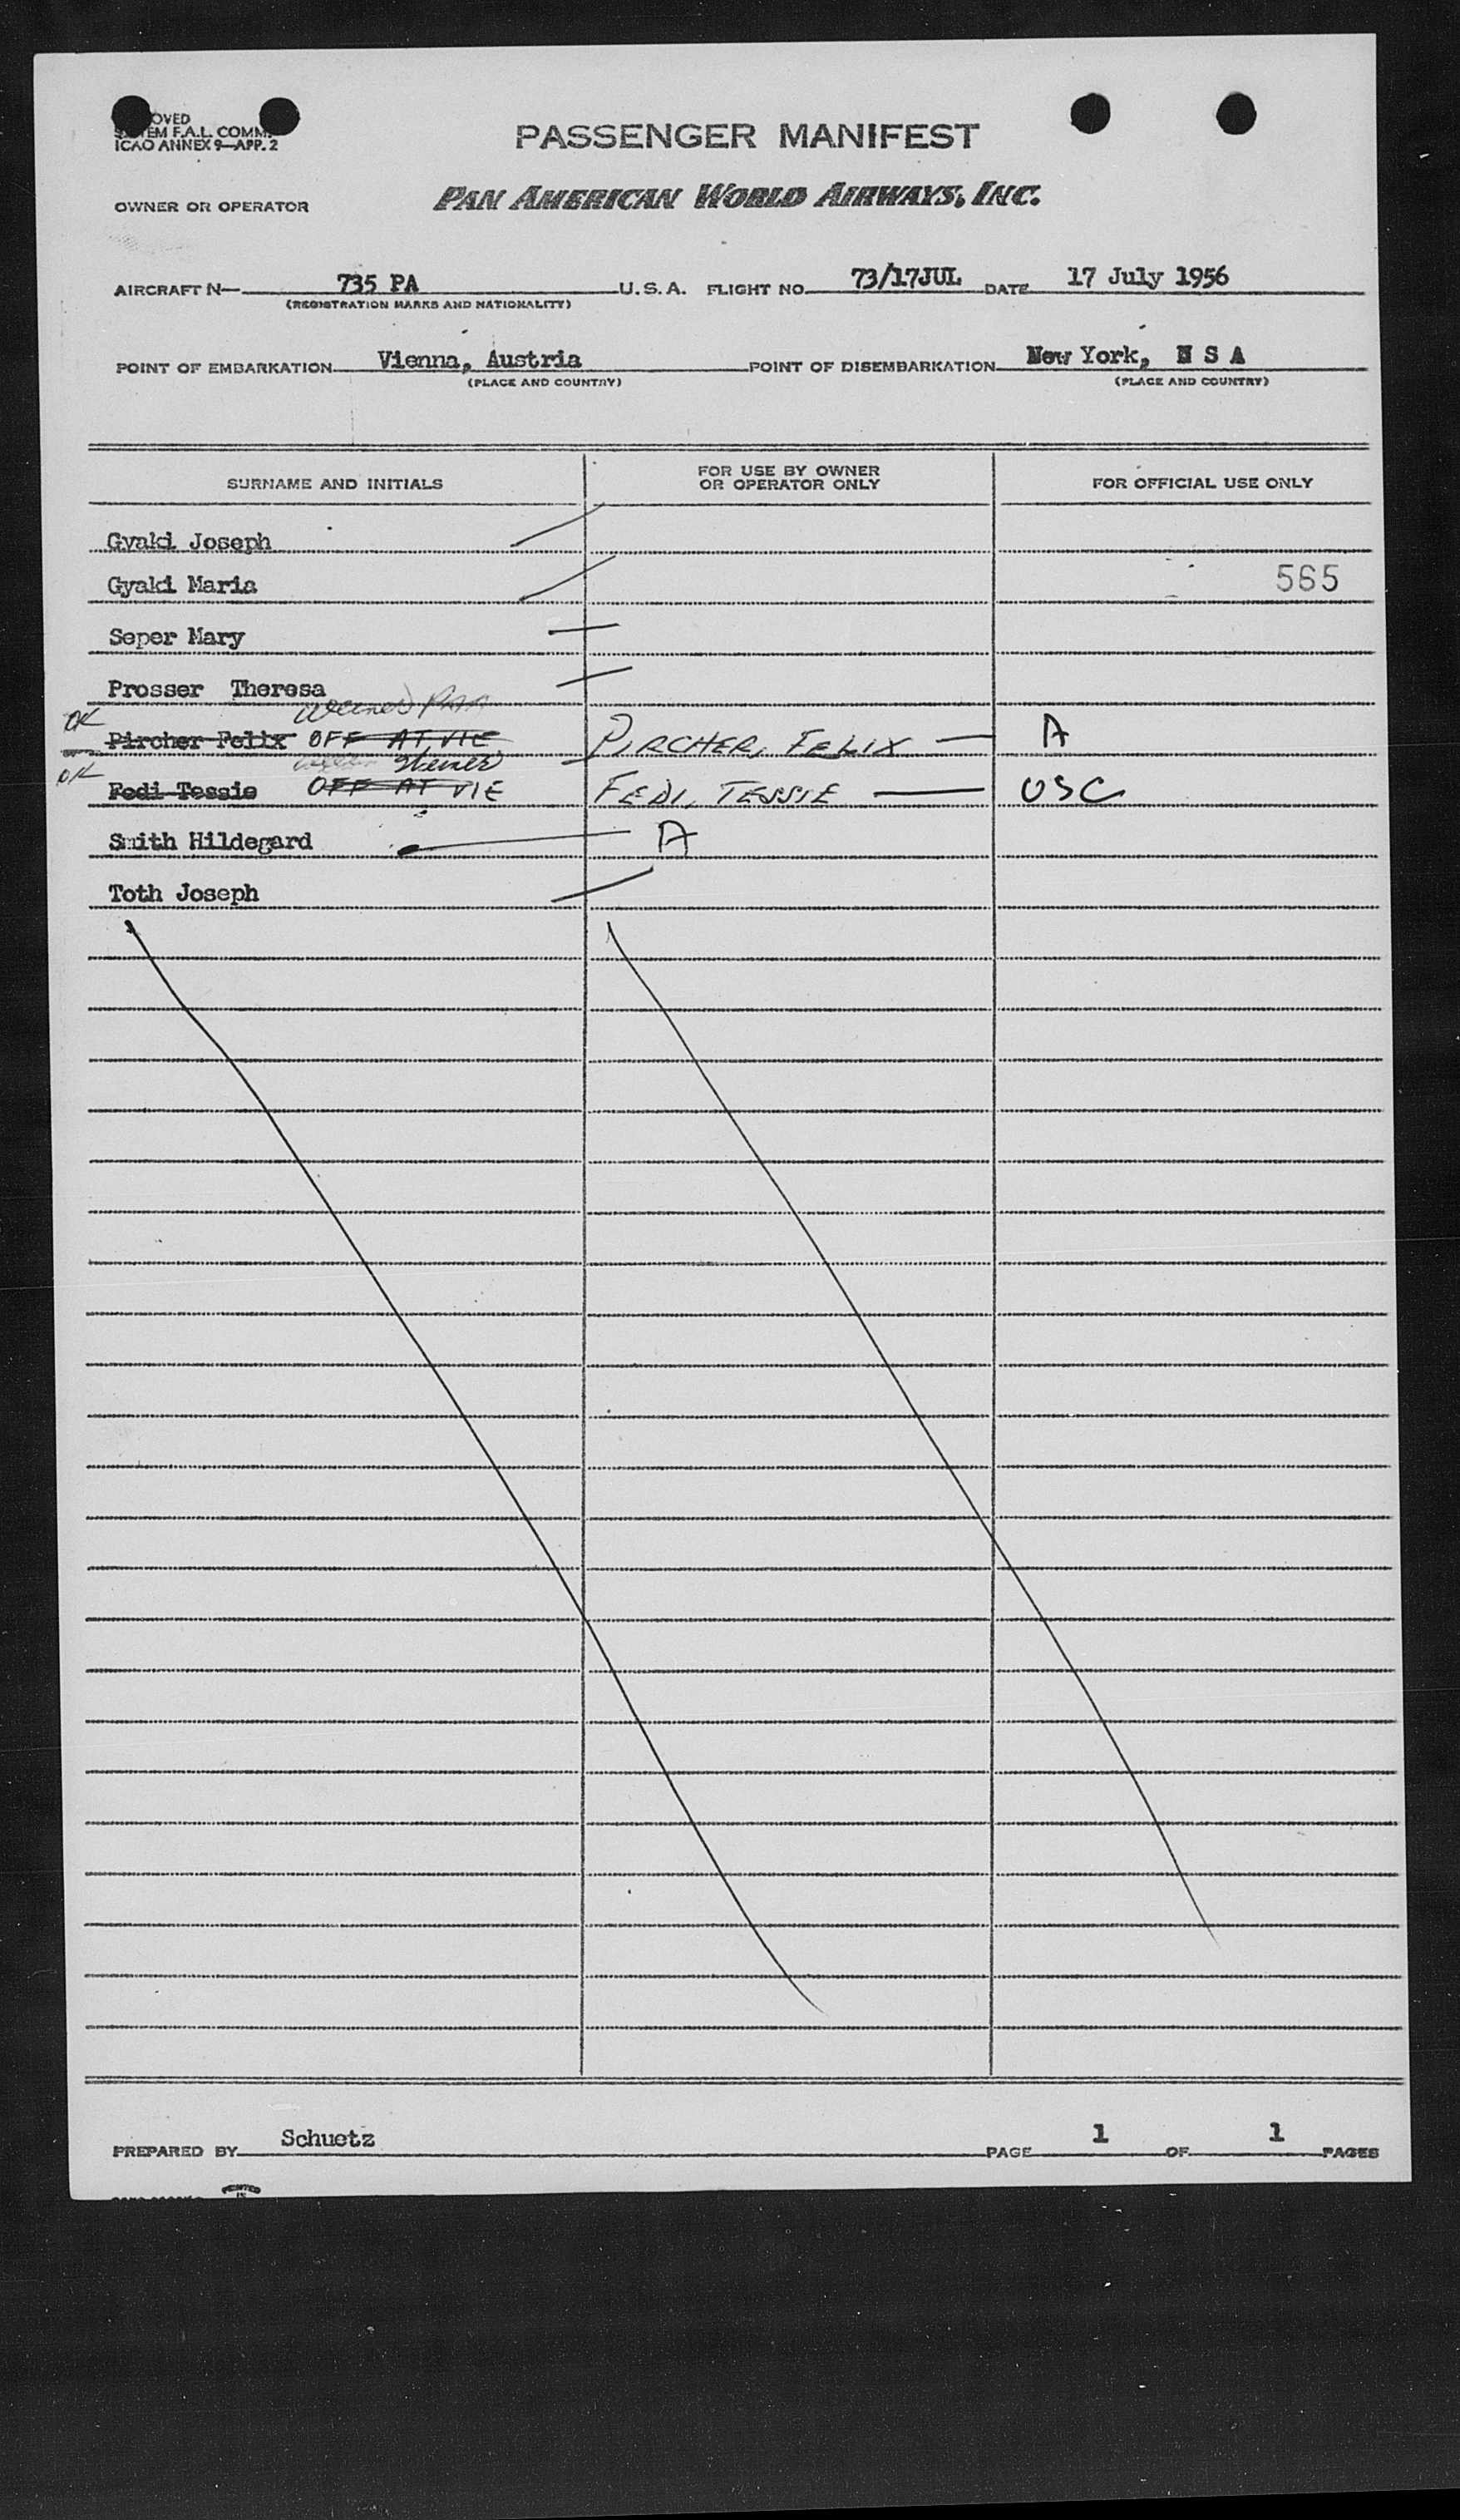 OVED
EM F.A.L. COMM.
ICAO ANNEX 9—APP. 2
PASSENGER MANIFEST
OWNER OR OPERATOR PAN AMERICAN WORLD AIRWAYS, INC.
AIRCRAFT N— 735 PA U.S.A. FLIGHT NO. 73/17JUL DATE 17 July 1956
(REGISTRATION MARKS AND NATIONALITY)
POINT OF EMBARKATION Vienna, Austria POINT OF DISEMBARKATION New York, N S A
(PLACE AND COUNTRY) (PLACE AND COUNTRY)
SURNAME AND INITIALS FOR USE BY OWNER OR OPERATOR ONLY FOR OFFICIAL USE ONLY
Gyaki Joseph
Gyaki Maria 565
Seper Mary
Prosser Theresa
OK Pircher Felix OFF AT VIE PIRCHER, FELIX — A
OK Fedi Tessie OFF AT VIE FEDI, TESSIE — USC
Smith Hildegard A
Toth Joseph
PREPARED BY Schuetz PAGE 1 OF 1 PAGES
PRINTED